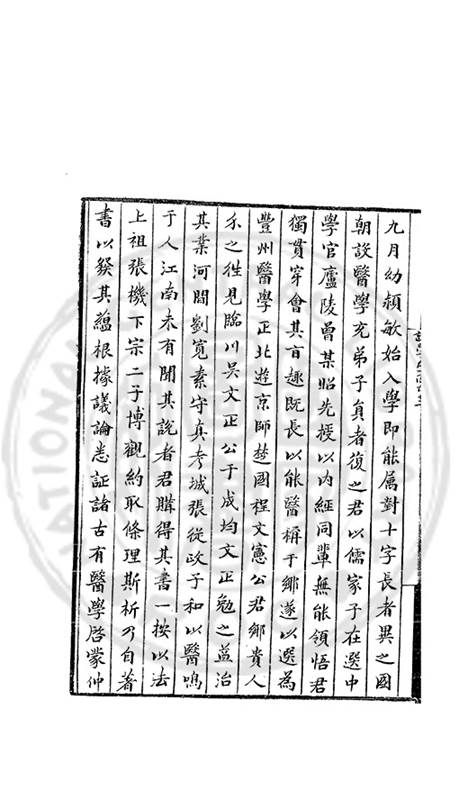 九月幼穎敏始入學即能属對十字長者異之國
朝設醫學充弟子員者復之君以儒家子在選中
學官廬陵曾某昭先授以内經同輩無能領悟君
獨貫穿會其旨趣既長以能醫稱于鄉遂以選為
豐州醫學正北遊京師楚國程文憲公君鄉貴人
示之徃見臨川吴文正公于成均文正勉之益治
其業河間劉寬素守真考城張從政子和以醫鳴
于人江南未有聞其說者君購得其書一按以法
上祖張機下宗二子博觀約取條理斯析乃自著
書以發其蘊根據議論悉証諸古有醫學啓蒙仲